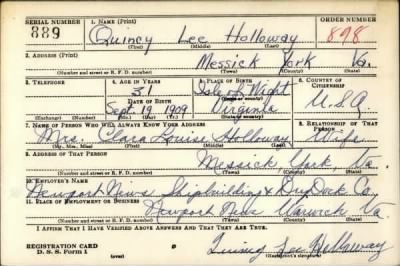 SERIAL NUMBER 1. NAME (Print) ORDER NUMBER
889 Quincy Lee Holloway 898
(First) (Middle) (Last)
2. ADDRESS (Print)
Messick York Va.
(Number and street or R. F. D. number) (Town) (County) (State)
3. TELEPHONE 4. AGE IN YEARS 5. PLACE OF BIRTH 6. COUNTRY OF CITIZENSHIP
31 Isle of Wight
(Town or county)
DATE OF BIRTH
Sept. 19 1909 Virginia U.S.A
(Exchange) (Number) (Mo.) (Day) (Yr.) (State or country)
7. NAME OF PERSON WHO WILL ALWAYS KNOW YOUR ADDRESS 8. RELATIONSHIP OF THAT PERSON
Mrs. Clara Holloway Wife
(Mr., Mrs., Miss) (First) (Middle) (Last)
9. ADDRESS OF THAT PERSON
Messick York, Va.
(Number and street or R. F. D. number) (Town) (County) (State)
10. EMPLOYER'S NAME
Newport News Shipbuilding & Dry Dock Co,
11. PLACE OF EMPLOYMENT OR BUSINESS
Newport News Warwick, Va.
(Number and street or R. F. D. number) (Town) (County) (State)
I AFFIRM THAT I HAVE VERIFIED ABOVE ANSWERS AND THAT THEY ARE TRUE.
REGISTRATION CARD
D. S. S. Form 1
Quincy Lee Holloway
(Registrant's signature)